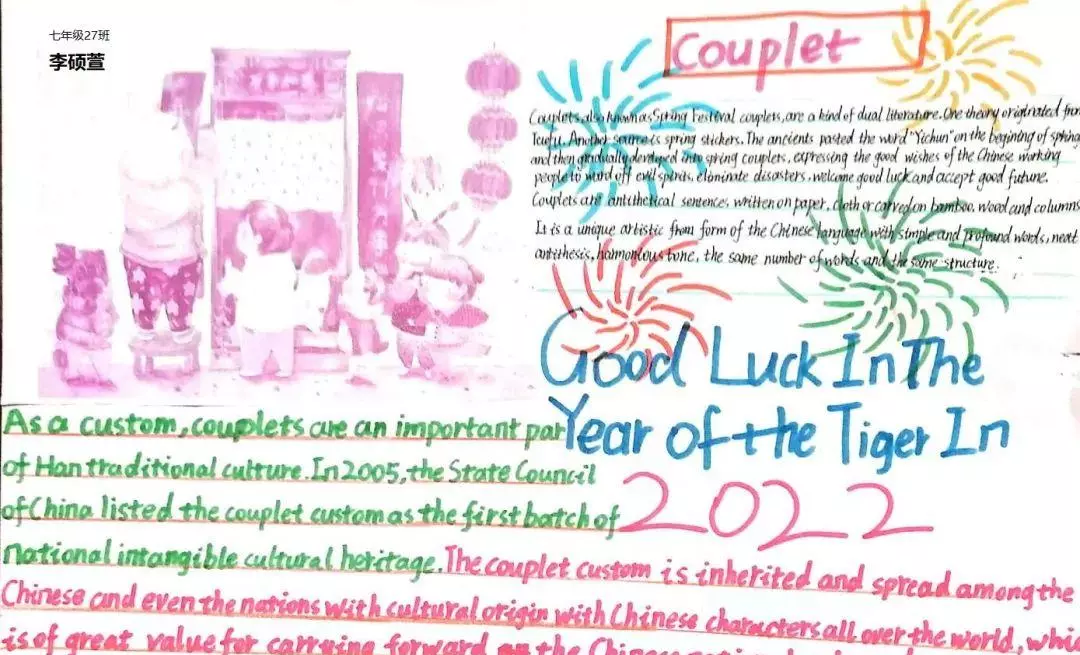 七年级27班
李硕萱
Couplet
Couplets, also known as Spring Festival couplets, are a kind of dual literature. One theory originated from
Taofu. Another source is spring stickers. The ancients pasted the word "Yichun" on the begining of spring
and then gradually developed into spring couplets, expressing the good wishes of the Chinese working
people to ward off evil spirits, eliminate disasters, welcome good luck and accept good future.
Couplets are antithetical sentences, written on paper, cloth or carved on bamboo, wood and columns
It is a unique artistic from form of the Chinese language with simple and profound words, neat
antithesis, harmonious tone, the same number of words and the same structure.
Good Luck In The
Year of the Tiger In
2022
As a custom, couplets are an important par
of Han traditional culture. In 2005, the State Council
of China listed the couplet custom as the first batch of
national intangible cultural heritage. The couplet custom is inherited and spread among the
Chinese and even the nations with cultural origin with Chinese characters all over the world, whi
is of great value for carrying forward the Chinese